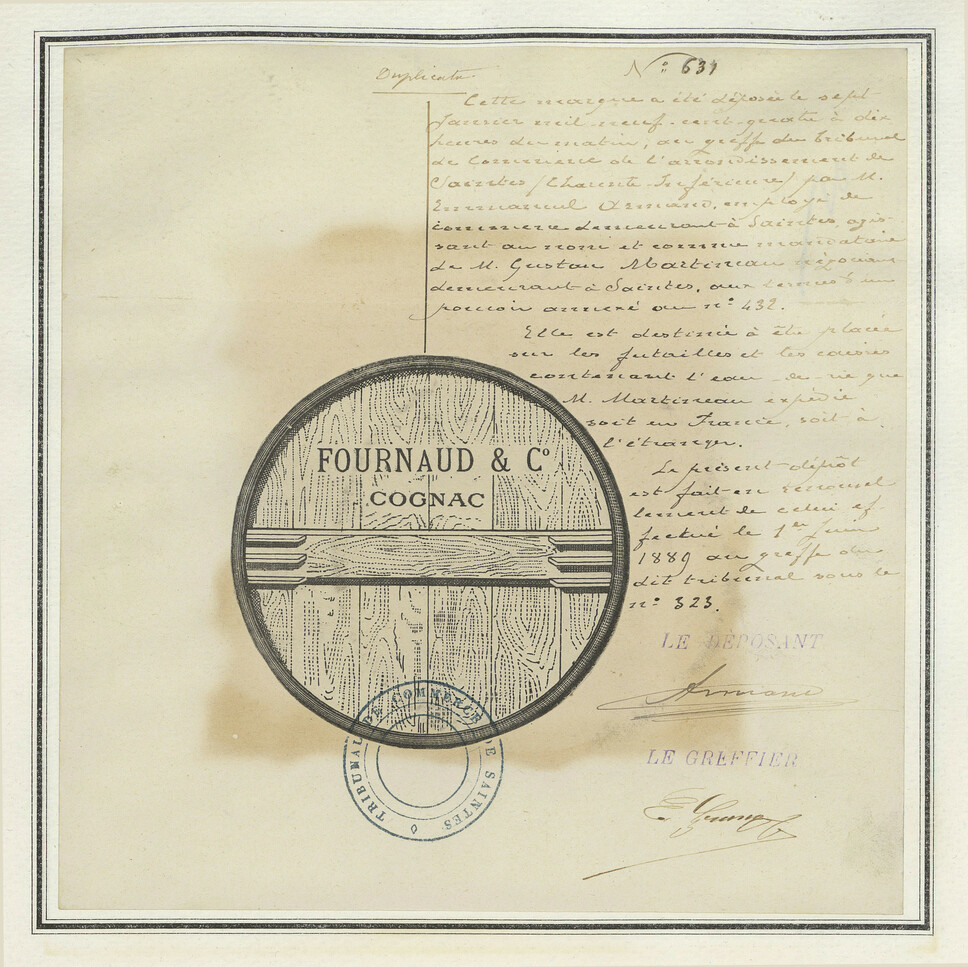 Duplicata
N° 631
Cette marque a été déposée le sept
Janvier mil neuf cent quatre à dix
heures du matin, au greffe du Tribunal
de Commerce de l'arrondissement de
Saintes (Charente-Inférieure) par M.
Emmanuel Armand, employé de
commerce demeurant à Saintes, agis-
sant au nom et comme mandataire
de M. Gustave Martineau négociant
demeurant à Saintes, aux termes d'un
pouvoir annexé au n° 432.
Elle est destinée à être placée
sur les futailles et les caisses
contenant l'eau-de-vie que
M. Martineau expédie
soit en France, soit à
l'étranger.
Le présent dépôt
est fait en renouvel
lement de celui ef
fectué le 1er Juin
1889 au greffe du
dit tribunal sous le
n° 323.
FOURNAUD & Co
COGNAC
LE DÉPOSANT
Armand
LE GREFFIER
TRIBUNAL DE COMMERCE DE SAINTES